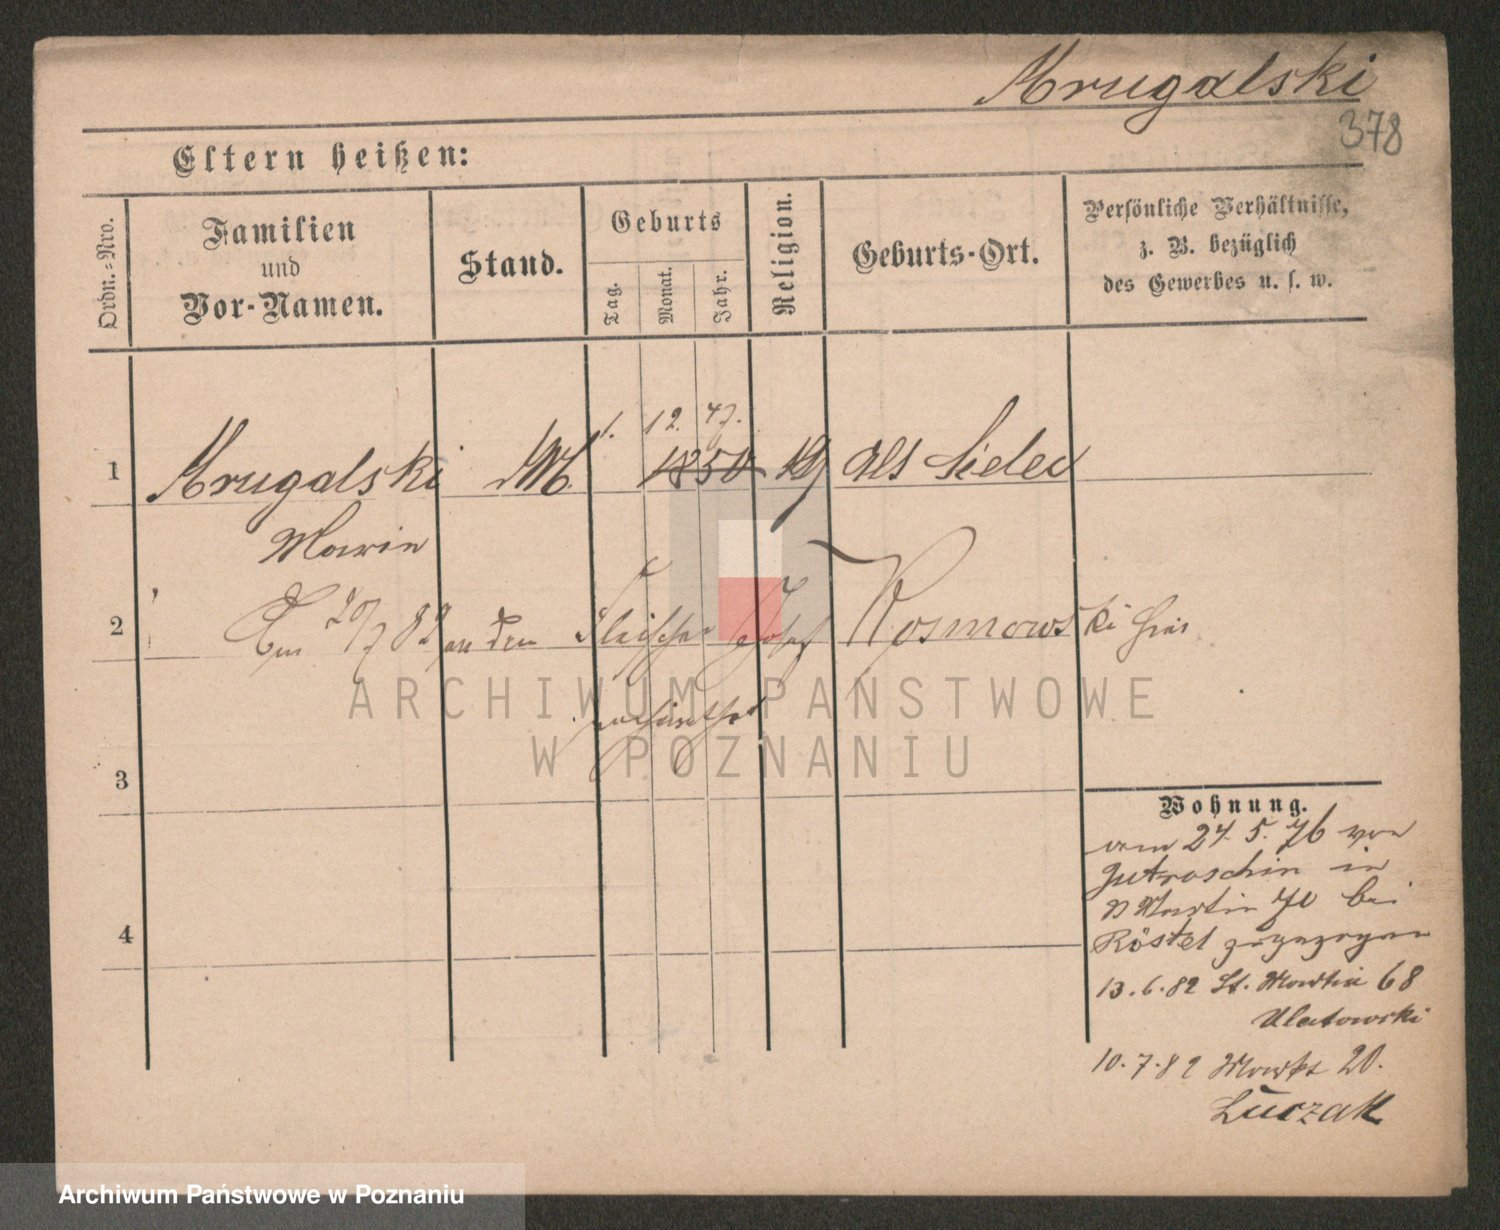 Mrugalski
378
Eltern heißen:
Ordn.-Nro.
Familien
und
Vor-Namen.
Stand.
Geburts
Tag.
Monat.
Jahr.
Religion.
Geburts-Ort.
Persönliche Verhältnisse,
z. B. bezüglich
des Gewerbes u. s. w.
1. 12. 47.
1 Mrugalski M. 1850 Alt Siedec
Marie
2 20/7 82 an den Fleischer Josef Rosmowski hier
verheirathet
ARCHIWUM PAŃSTWOWE
W POZNANIU
3
4
Wohnung.
am 27. 5. 76 von
Jutroschin in
St Martin 70 bei
Röstel zugezogen
13. 6. 82 St. Martin 68
Ulatowski
10. 7. 82 Markt 20.
Luczak
Archiwum Państwowe w Poznaniu